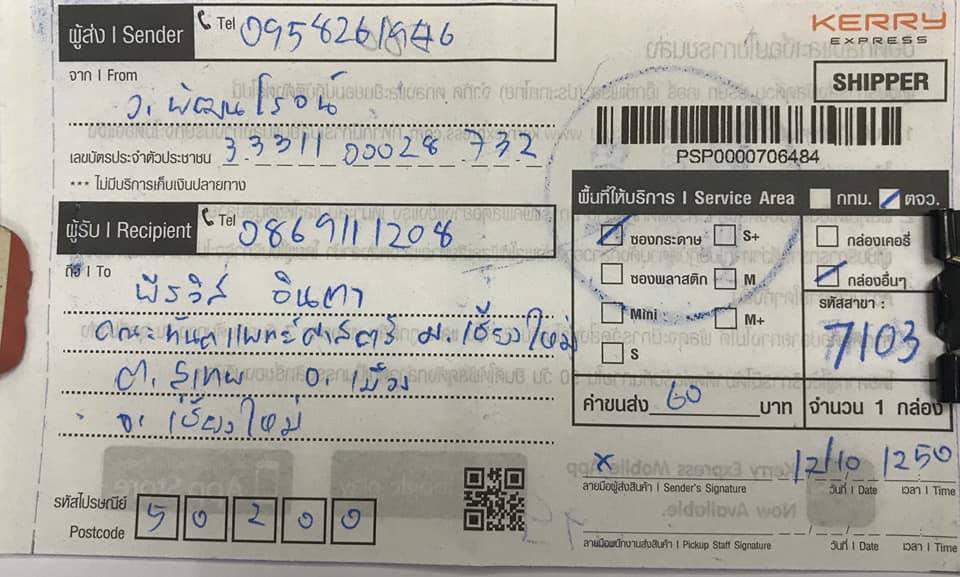 KERRY
EXPRESS
SHIPPER
PSP0000706484
ผู้ส่ง | Sender
Tel
จาก | From
ว. พัฒนโรจน์
เลขบัตรประจำตัวประชาชน 3 3311 00028 732
*** ไม่มีบริการเก็บเงินปลายทาง
ผู้รับ | Recipient
Tel 0869111208
ถึง | To
พีรวิส อินตา
คณะทันตแพทย์ศาสตร์ ม.เชียงใหม่
ต. สุเทพ อ. เมือง
จ. เชียงใหม่
รหัสไปรษณีย์
Postcode
50200
พื้นที่ให้บริการ | Service Area กทม. ตจว.
ซองกระดาษ S+ กล่องเคอรี่
ซองพลาสติก M กล่องอื่นๆ
Mini M+
S
รหัสสาขา :
7103
ค่าขนส่ง 60 บาท
จำนวน 1 กล่อง
x 12/10 1250
ลายมือผู้ส่งสินค้า | Sender's Signature วันที่ | Date เวลา | Time
ลายมือพนักงานส่งสินค้า | Pickup Staff Signature วันที่ | Date เวลา | Time